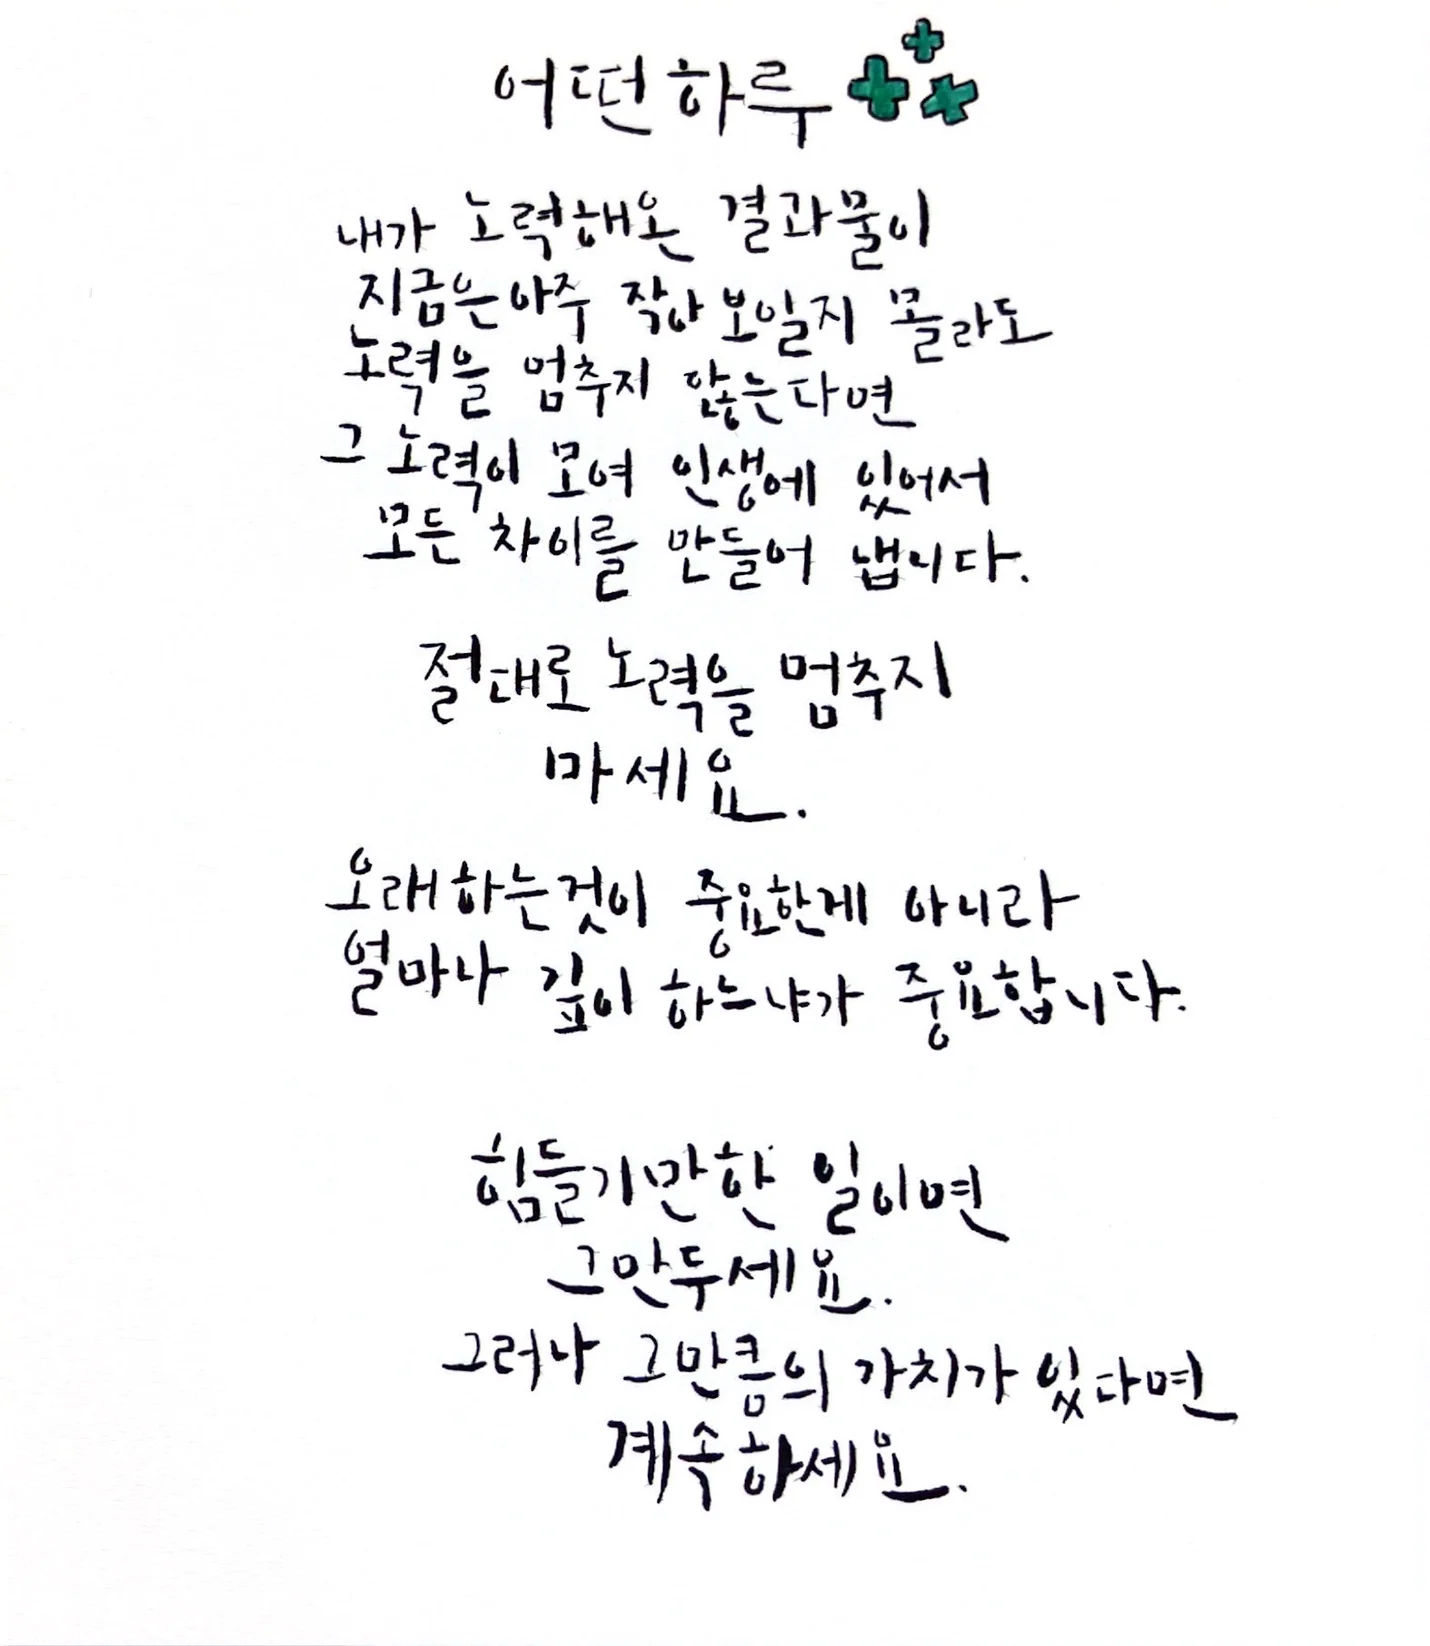 어떤하루
내가 노력해온 결과물이
지금은아주 작아 보일지 몰라도
노력을 멈추지 않는다면
그 노력이 모여 인생에 있어서
모든 차이를 만들어 냅니다.
절대로 노력을 멈추지
마세요.
오래하는것이 중요한게 아니라
얼마나 깊이 하느냐가 중요합니다.
힘들기만한 일이면
그만두세요.
그러나 그만큼의 가치가 있다면
계속하세요.